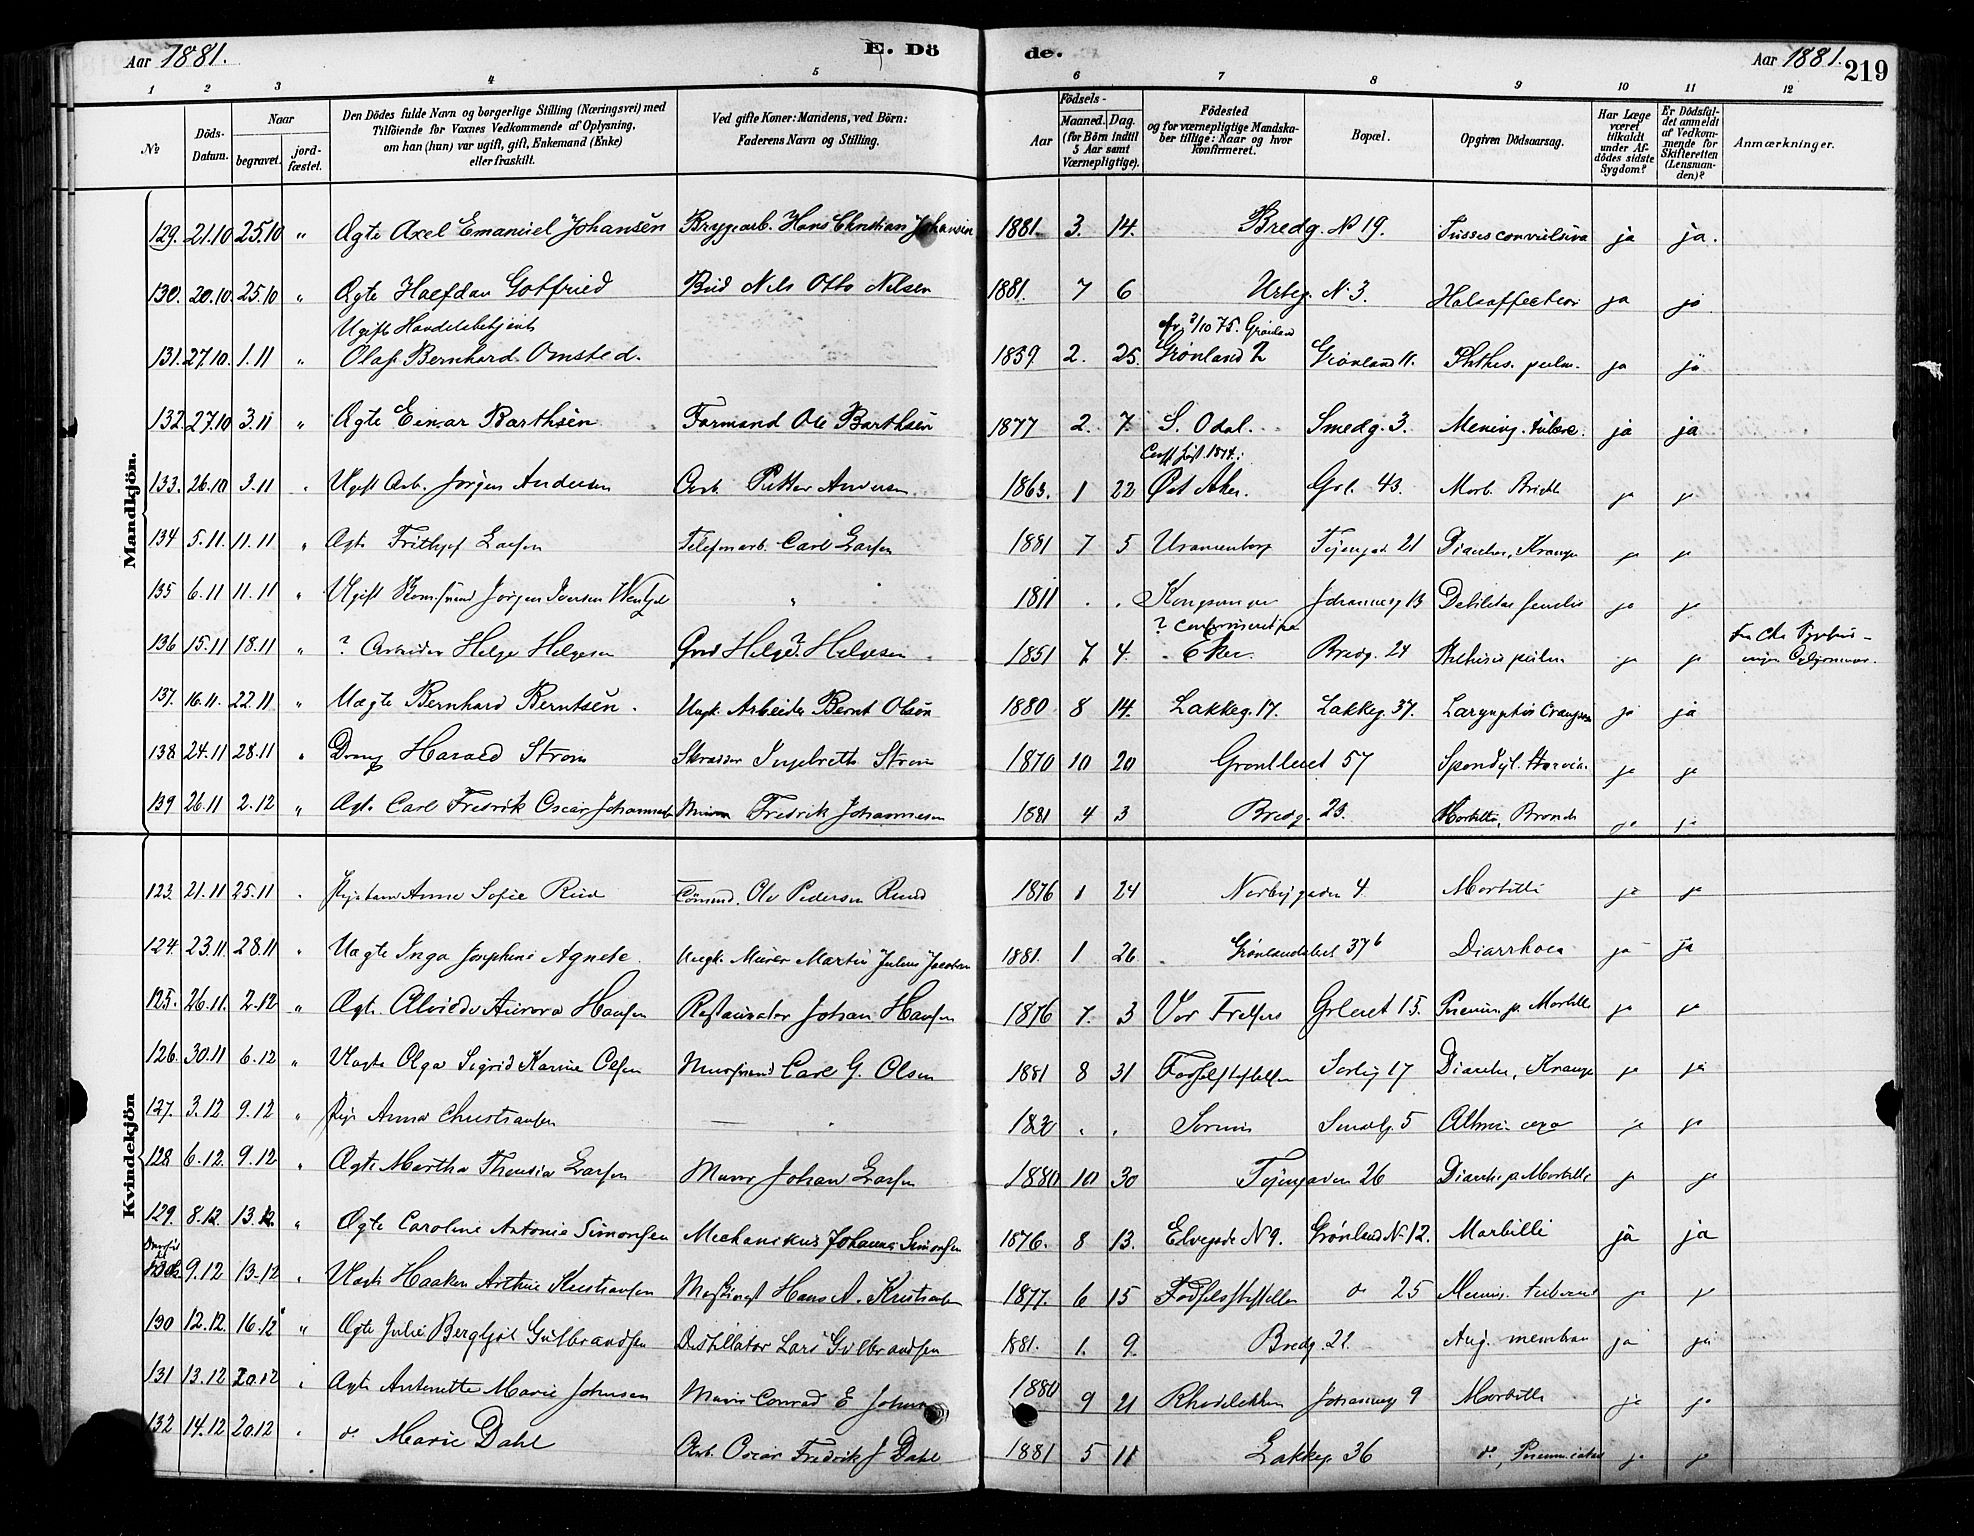 Aar 1881. E. Döde. Aar 1881. 219
1 2 3 4 5 6 7 8 9 10 11 12
№
Döds-Datum.
Naar
begravet.
jordfæstet.
Den Dödes fulde Navn og borgerlige Stilling (Næringsvei) med
Tilföiende for Voxnes Vedkommende af Oplysning,
om han (hun) var ugift, gift, Enkemand (Enke)
eller fraskilt.
Ved gifte Koner: Mandens, ved Börn:
Faderens Navn og Stilling.
Födsels-
Aar
Maaned. Dag.
(for Börn indtil
5 Aar samt
Værnepligtige).
Födested
og for værnepligtige Mandskaber tillige: Naar og hvor
konfirmeret.
Bopæl.
Opgiven Dödsaarsag.
Har Læge
været
tilkaldt
under Afdödes sidste
Sygdom?
Er Dödsfaldet anmeldt
af Vedkommende for
Skifteretten
(Lensmanden)?
Anmærkninger.
Mandkjön.
129. 21.10 25.10 " Ægte Axel Emanuel Johansen Bryggearb. Hans Christian Johansen 1881. 3. 14. Bredg. N 19. Tussis convulsiva ja ja.
130. 20.10. 25.10 " Ægte Halfdan Gotfried Bud Nils Otto Nilsen 1881. 7 6 Urteg. N. 3. Halsaffection ja ja
Ugift Handelsbetjent 75. Grønland
131. 27.10. 1.11 " Olaf Bernhard Omsted. 1859 2. 25. Grønland 2 Grønland 11. Phthis. pulm. ja ja
132. 27.10 3.11 " Ægte Einar Barthsen Formand Ole Barthsen 1877 2. 7. S. Odal. Smedg. 3. Mening. tuberc. ja ja
1874.
133. 26.10 3.11 Ugift Arb. Jørgen Andersen Arb. Petter Andersen 1863. 1 22 Øst Aker. Grl. 43. Morb. ja ja
134 5.11. 11.11 " Ægte Frithjof Larsen Telefonarb. Carl Larsen 1881 7 5 Uranienborg Tøiengd. 21 Diarrhoe, Krampe ja ja
135 6.11 11.11 " Ugift Jørgen Iversen " 1811 . . Johannesg 13 Debilitas senilis ja ja
? confirmeret
136 15.11 18.11 " ? Arbeider Helge Helgesen Helge? Helgesen 1851 7 4. Eker. Bredg. 24 Phthisis pulm ja ja
137. 16.11. 22.11 " Uægte Bernhard Berntsen. Ungk. Arbeider Bernt Olsen 1880 8 14. Lakkeg. 17. Lakkeg. 37. Laryngitis ja ja
138 24.11 28.11 " Dreng Harald Strøm Skrædder Ingebreth Strøm 1870 10 20 Grønlleret 57 Spondyl. ja ja
139 26.11 2.12 " Ægte Carl Fredrik Oscar Johannesen Fredrik Johannesen 1881 4 3 Bredg. 23. Morbilli, Bronch ja ja
Kvindekjön
123. 21.11 25.11 Pigebarn Anna Sofie Rud Ole Pedersen Ruud 1876 1 24 Norbygaden 4 Morbilli ja ja
124. 23.11. 28.11 Uægte Inga Josephine Agnete. Ungk. Murer Martin Julius Jacobsen 1881. 1 26. Grønlandsleret 37 b Diarrhoea ja ja
125. 26.11. 2.12 " Ægte Aurora Hansen Restauratør Johan Hansen 1876 7. 3 Vor Frelsers Grleret 15. Pneum. p. Morbill ja ja
126. 30.11 6.12 " Uægte Olga Sigrid Karine Olsen Carl G. Olsen 1881 8 31 Fødselsstiftelsen Sørlig 17 Diarrhoe, Krampe ja ja
127. 3.12 9.12 " Pige Anna Christiansen " . . Sørum Smalg. 5 ja ja
128 6.12. 9.12 " Ægte Martha Theresia Larsen Murer Johan Larsen 1880 10 30 Tøiengaden 26 Diarrhoe p. Morbilli ja ja
129. 8.12 13.12. " Ægte Caroline Antonie Simonsen Mechanikus Johannes Simonsen 1876. 8 13. Elvegade N 9. Grønland N 12. Morbilli ja ja
9.12 13.12 Uægte Haakon Arthur Kristiansen Hans A. Kristiansen 1877. 6 15 Fødselsstiftelsen do 25 Mening. tubercul ja ja
130 12.12. 16.12 " Ægte Julie Bergljot Gulbrandsen Destillatør Lars Gulbrandsen 1881. 1. 9. Bredg. 21. Ang. membran ja ja
131 13.12 20.12 Ægte Antonette Marie Johnsen Murer Conrad E. Johnsen 1880 9 21 Rhodeløkken Johannesg 9 Morbilli ja ja
132 14.12 20.12 do Marie Dahl Arb. Oscar Fredrik J Dahl 1881 5 11 Lakkeg. 36 do, Pneumi ja ja